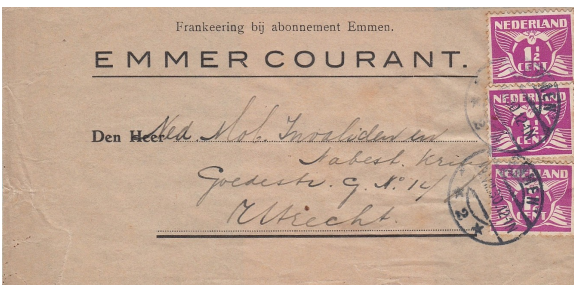 Frankeering bij abonnement Emmen.
EMMER COURANT.
Den Heer Ned Mob Invaliden en
Nabest.
Goedestr. No 14
Utrecht.
NEDERLAND
1½
CENT
NEDERLAND
1½
CENT
NEDERLAND
CENT
EMMEN
2